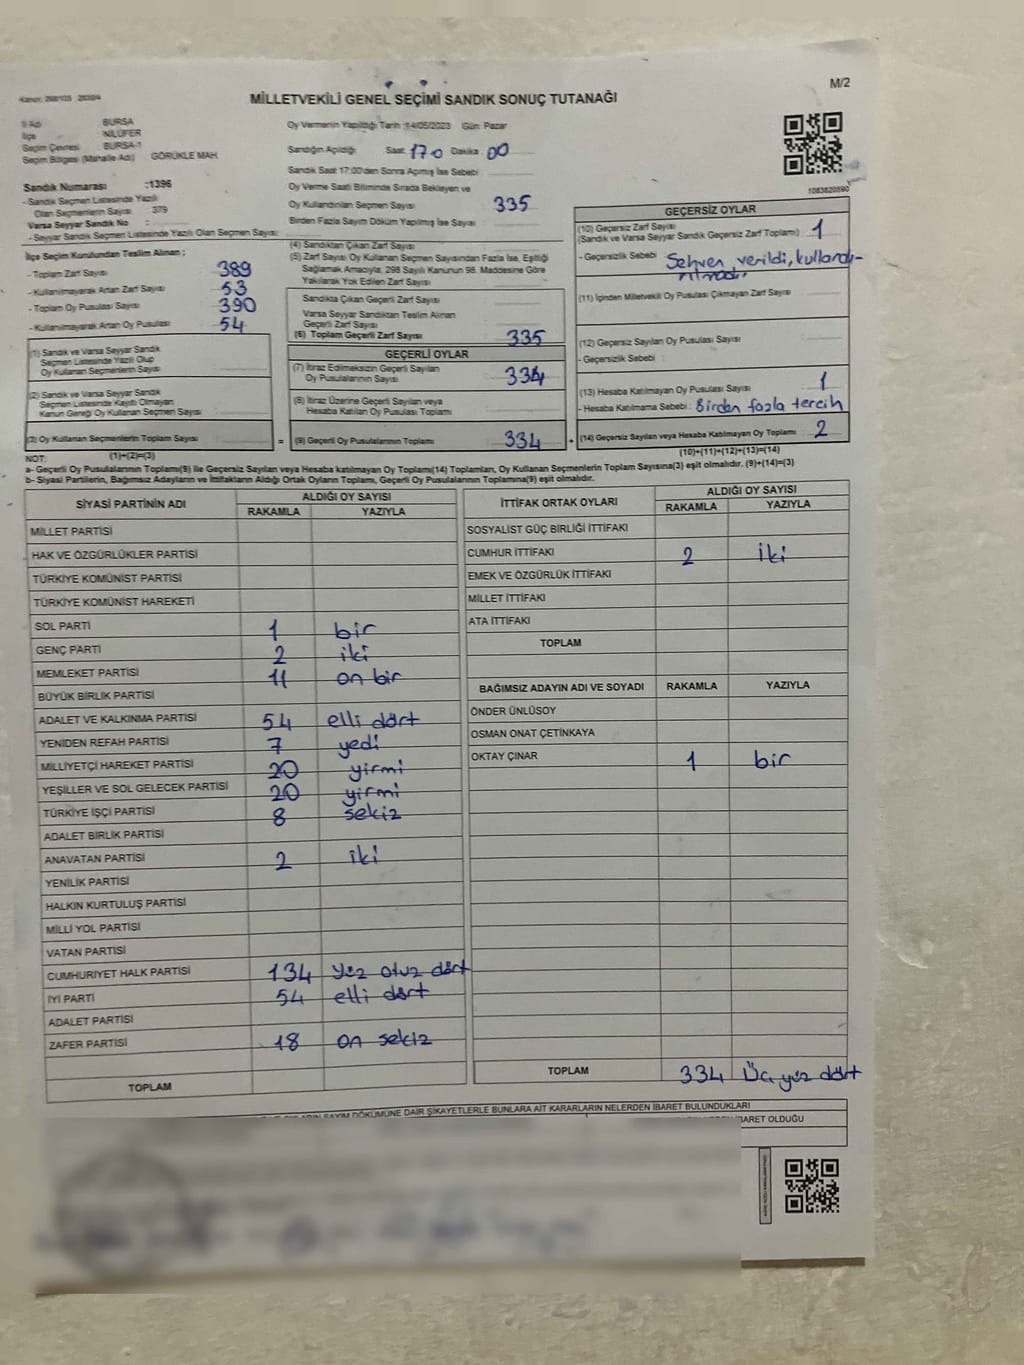 M/2
MİLLETVEKİLİ GENEL SEÇİMİ SANDIK SONUÇ TUTANAĞI
İl Adı : BURSA
İlçe : NİLÜFER
Seçim Çevresi : BURSA-1
Seçim Bölgesi (Mahalle Adı) : GÖRÜKLE MAH.
Sandık Numarası :1396
-Sandık Seçmen Listesinde Yazılı
Olan Seçmenlerin Sayısı : 379
Varsa Seyyar Sandık No :
- Seyyar Sandık Seçmen Listesinde Yazılı Olan Seçmen Sayısı:
Oy Vermenin Yapıldığı Tarih :14/05/2023 Gün: Pazar
Sandığın Açıldığı Saat: 17 0 Dakika 00
Sandık Saat 17:00'den Sonra Açılmış İse Sebebi
Oy Verme Saati Bitiminde Sırada Bekleyen ve
Oy Kullandırılan Seçmen Sayısı 335
Birden Fazla Sayım Döküm Yapılmış İse Sayısı
1083820890
İlçe Seçim Kurulundan Teslim Alınan ;
- Toplam Zarf Sayısı : 389
- Kullanılmayarak Artan Zarf Sayısı : 53
- Toplam Oy Pusulası Sayısı : 390
- Kullanılmayarak Artan Oy Pusulası : 54
(1) Sandık ve Varsa Seyyar Sandık
Seçmen Listesinde Yazılı Olup
Oy Kullanan Seçmenlerin Sayısı :
(2) Sandık ve Varsa Seyyar Sandık
Seçmen Listesinde Kaydı Olmayan
Kanun Gereği Oy Kullanan Seçmen Sayısı :
(3) Oy Kullanan Seçmenlerin Toplam Sayısı :
(1)+(2)=(3)
(4) Sandıktan Çıkan Zarf Sayısı :
(5) Zarf Sayısı Oy Kullanan Seçmen Sayısından Fazla İse, Eşitliği
Sağlamak Amacıyla, 298 Sayılı Kanunun 98. Maddesine Göre
Yakılarak Yok Edilen Zarf Sayısı :
Sandıkta Çıkan Geçerli Zarf Sayısı :
Varsa Seyyar Sandıktan Teslim Alınan
Geçerli Zarf Sayısı :
(6) Toplam Geçerli Zarf Sayısı : 335
GEÇERLİ OYLAR
(7) İtiraz Edilmeksizin Geçerli Sayılan
Oy Pusulalarının Sayısı : 334
(8) İtiraz Üzerine Geçerli Sayılan veya
Hesaba Katılan Oy Pusulası Toplamı :
= (9) Geçerli Oy Pusulalarının Toplamı : 334
GEÇERSİZ OYLAR
(10) Geçersiz Zarf Sayısı
(Sandık ve Varsa Seyyar Sandık Geçersiz Zarf Toplamı) : 1
- Geçersizlik Sebebi : Sehven verildi, kullandı-
rılmadı.
(11) İçinden Milletvekili Oy Pusulası Çıkmayan Zarf Sayısı :
(12) Geçersiz Sayılan Oy Pusulası Sayısı :
- Geçersizlik Sebebi :
(13) Hesaba Katılmayan Oy Pusulası Sayısı : 1
- Hesaba Katılmama Sebebi : Birden fazla tercih
+ (14) Geçersiz Sayılan veya Hesaba Katılmayan Oy Toplamı : 2
(10)+(11)+(12)+(13)=(14)
NOT:
a- Geçerli Oy Pusulalarının Toplamı(9) ile Geçersiz Sayılan veya Hesaba katılmayan Oy Toplamı(14) Toplamları, Oy Kullanan Seçmenlerin Toplam Sayısına(3) eşit olmalıdır. (9)+(14)=(3)
b- Siyasi Partilerin, Bağımsız Adayların ve İttifakların Aldığı Ortak Oyların Toplamı, Geçerli Oy Pusulalarının Toplamına(9) eşit olmalıdır.
SİYASİ PARTİNİN ADI ALDIĞI OY SAYISI
RAKAMLA YAZIYLA
MİLLET PARTİSİ
HAK VE ÖZGÜRLÜKLER PARTİSİ
TÜRKİYE KOMÜNİST PARTİSİ
TÜRKİYE KOMÜNİST HAREKETİ
SOL PARTİ 1 bir
GENÇ PARTİ 2 iki
MEMLEKET PARTİSİ 11 on bir
BÜYÜK BİRLİK PARTİSİ
ADALET VE KALKINMA PARTİSİ 54 elli dört
YENİDEN REFAH PARTİSİ 7 yedi
MİLLİYETÇİ HAREKET PARTİSİ 20 yirmi
YEŞİLLER VE SOL GELECEK PARTİSİ 20 yirmi
TÜRKİYE İŞÇİ PARTİSİ 8 sekiz
ADALET BİRLİK PARTİSİ
ANAVATAN PARTİSİ 2 iki
YENİLİK PARTİSİ
HALKIN KURTULUŞ PARTİSİ
MİLLİ YOL PARTİSİ
VATAN PARTİSİ
CUMHURİYET HALK PARTİSİ 134 yüz otuz dört
İYİ PARTİ 54 elli dört
ADALET PARTİSİ
ZAFER PARTİSİ 18 on sekiz
TOPLAM
İTTİFAK ORTAK OYLARI ALDIĞI OY SAYISI
RAKAMLA YAZIYLA
SOSYALİST GÜÇ BİRLİĞİ İTTİFAKI
CUMHUR İTTİFAKI 2 iki
EMEK VE ÖZGÜRLÜK İTTİFAKI
MİLLET İTTİFAKI
ATA İTTİFAKI
TOPLAM
BAĞIMSIZ ADAYIN ADI VE SOYADI RAKAMLA YAZIYLA
ÖNDER ÜNLÜSOY
OSMAN ONAT ÇETİNKAYA
OKTAY ÇINAR 1 bir
TOPLAM 334 Üç yüz dört
SAYIM DÖKÜMÜNE DAİR ŞİKAYETLERLE BUNLARA AİT KARARLARIN NELERDEN İBARET BULUNDUKLARI
İBARET OLDUĞU